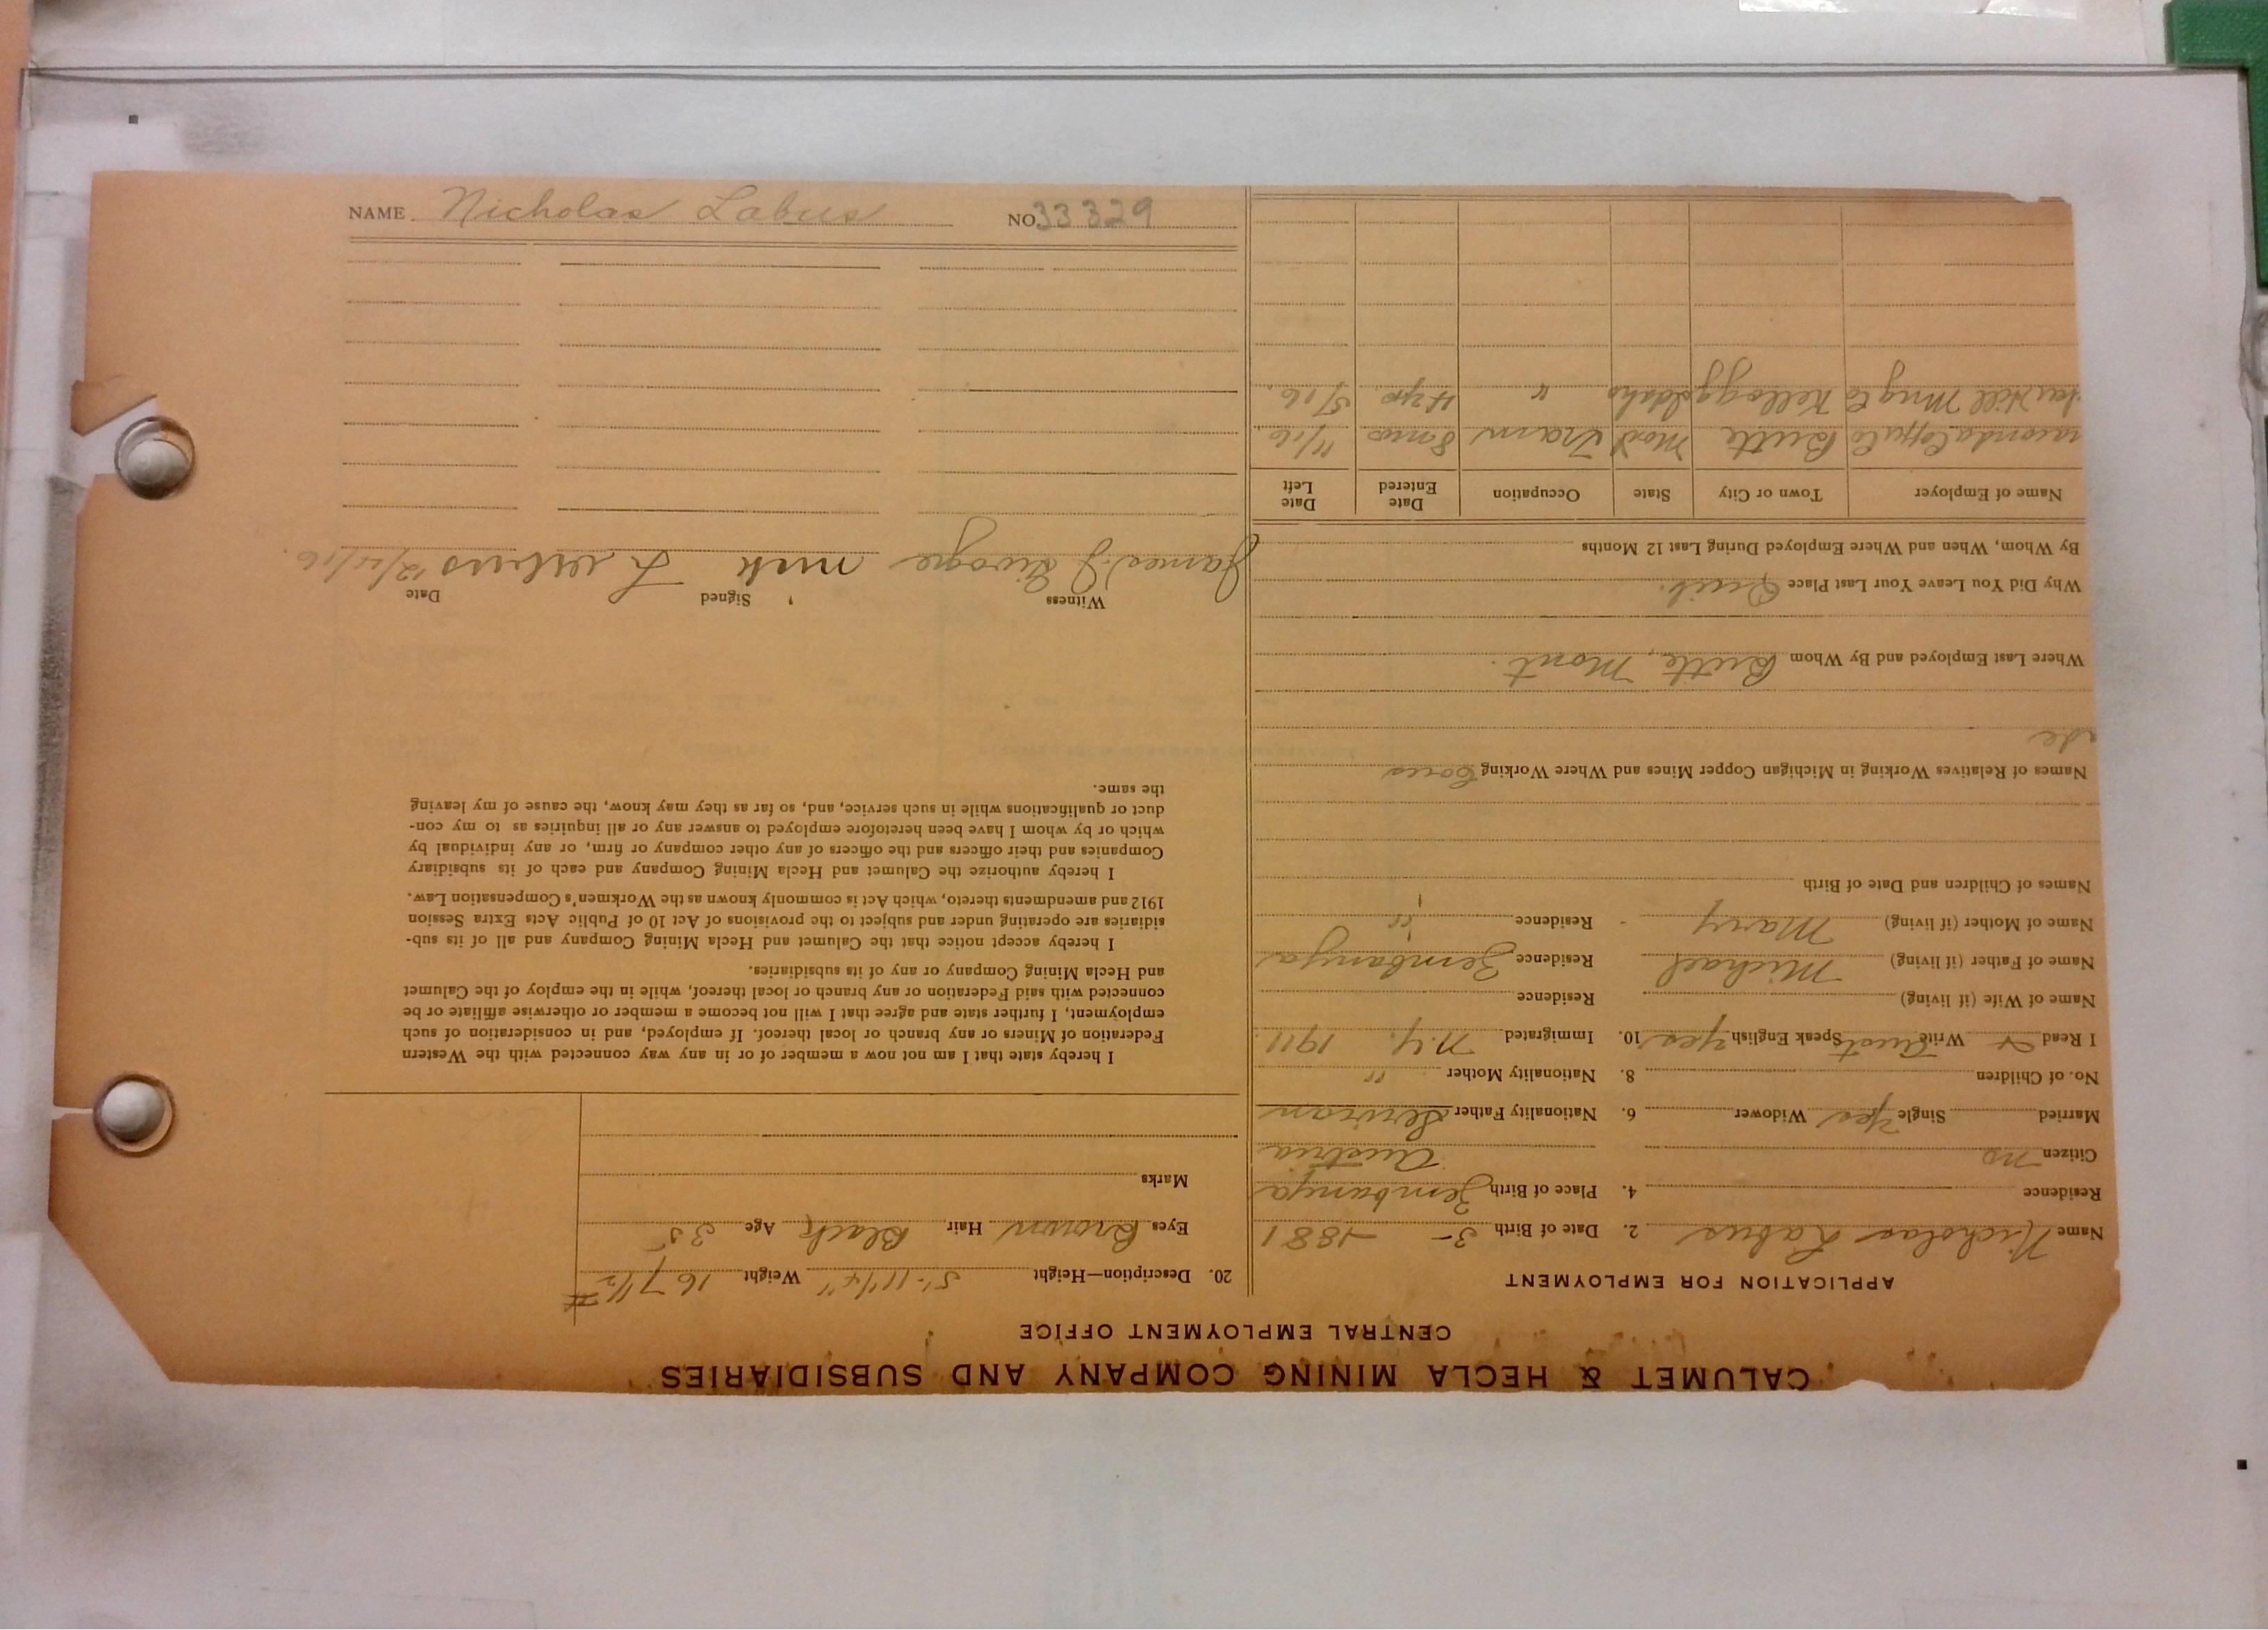 CALUMET & HECLA MINING COMPANY AND SUBSIDIARIES
CENTRAL EMPLOYMENT OFFICE
APPLICATION FOR EMPLOYMENT
Name Nicholas Labus 2. Date of Birth 3- -1881
Residence 4. Place of Birth Zembanja
Citizen no Austria
Married Single Yes Widower 6. Nationality Father Servian
No. of Children 8. Nationality Mother "
I Read Write Aust Speak English Yes 10. Immigrated N.Y. 1911
Name of Wife (if living) Residence
Name of Father (if living) Michael Residence Zembanja
Name of Mother (if living) Mary Residence "
Names of Children and Date of Birth
Names of Relatives Working in Michigan Copper Mines and Where Working
Where Last Employed and By Whom Butte, Mont.
Why Did You Leave Your Last Place Quit.
By Whom, When and Where Employed During Last 12 Months
Name of Employer Town or City State Occupation Date Entered Date Left
naconda Copper Co Butte Mont Tram 8 mos 11/16.
Hill Mng Co Kellogg Idaho " 4 yrs. 5/16.
20. Description—Height 5'-11 1/4" Weight 167 1/2 #
Eyes Brown Hair Black Age 35
Marks
I hereby state that I am not now a member of or in any way connected with the Western
Federation of Miners or any branch or local thereof. If employed, and in consideration of such
employment, I further state and agree that I will not become a member or otherwise affiliate or be
connected with said Federation or any branch or local thereof, while in the employ of the Calumet
and Hecla Mining Company or any of its subsidiaries.
I hereby accept notice that the Calumet and Hecla Mining Company and all of its sub-
sidiaries are operating under and subject to the provisions of Act 10 of Public Acts Extra Session
1912 and amendments thereto, which Act is commonly known as the Workmen's Compensation Law.
I hereby authorize the Calumet and Hecla Mining Company and each of its subsidiary
Companies and their officers and the officers of any other company or firm, or any individual by
which or by whom I have been heretofore employed to answer any or all inquiries as to my con-
duct or qualifications while in such service, and, so far as they may know, the cause of my leaving
the same.
Witness Signed Date
James J. mick 12/4/16.
NAME Nicholas Labus NO. 33329